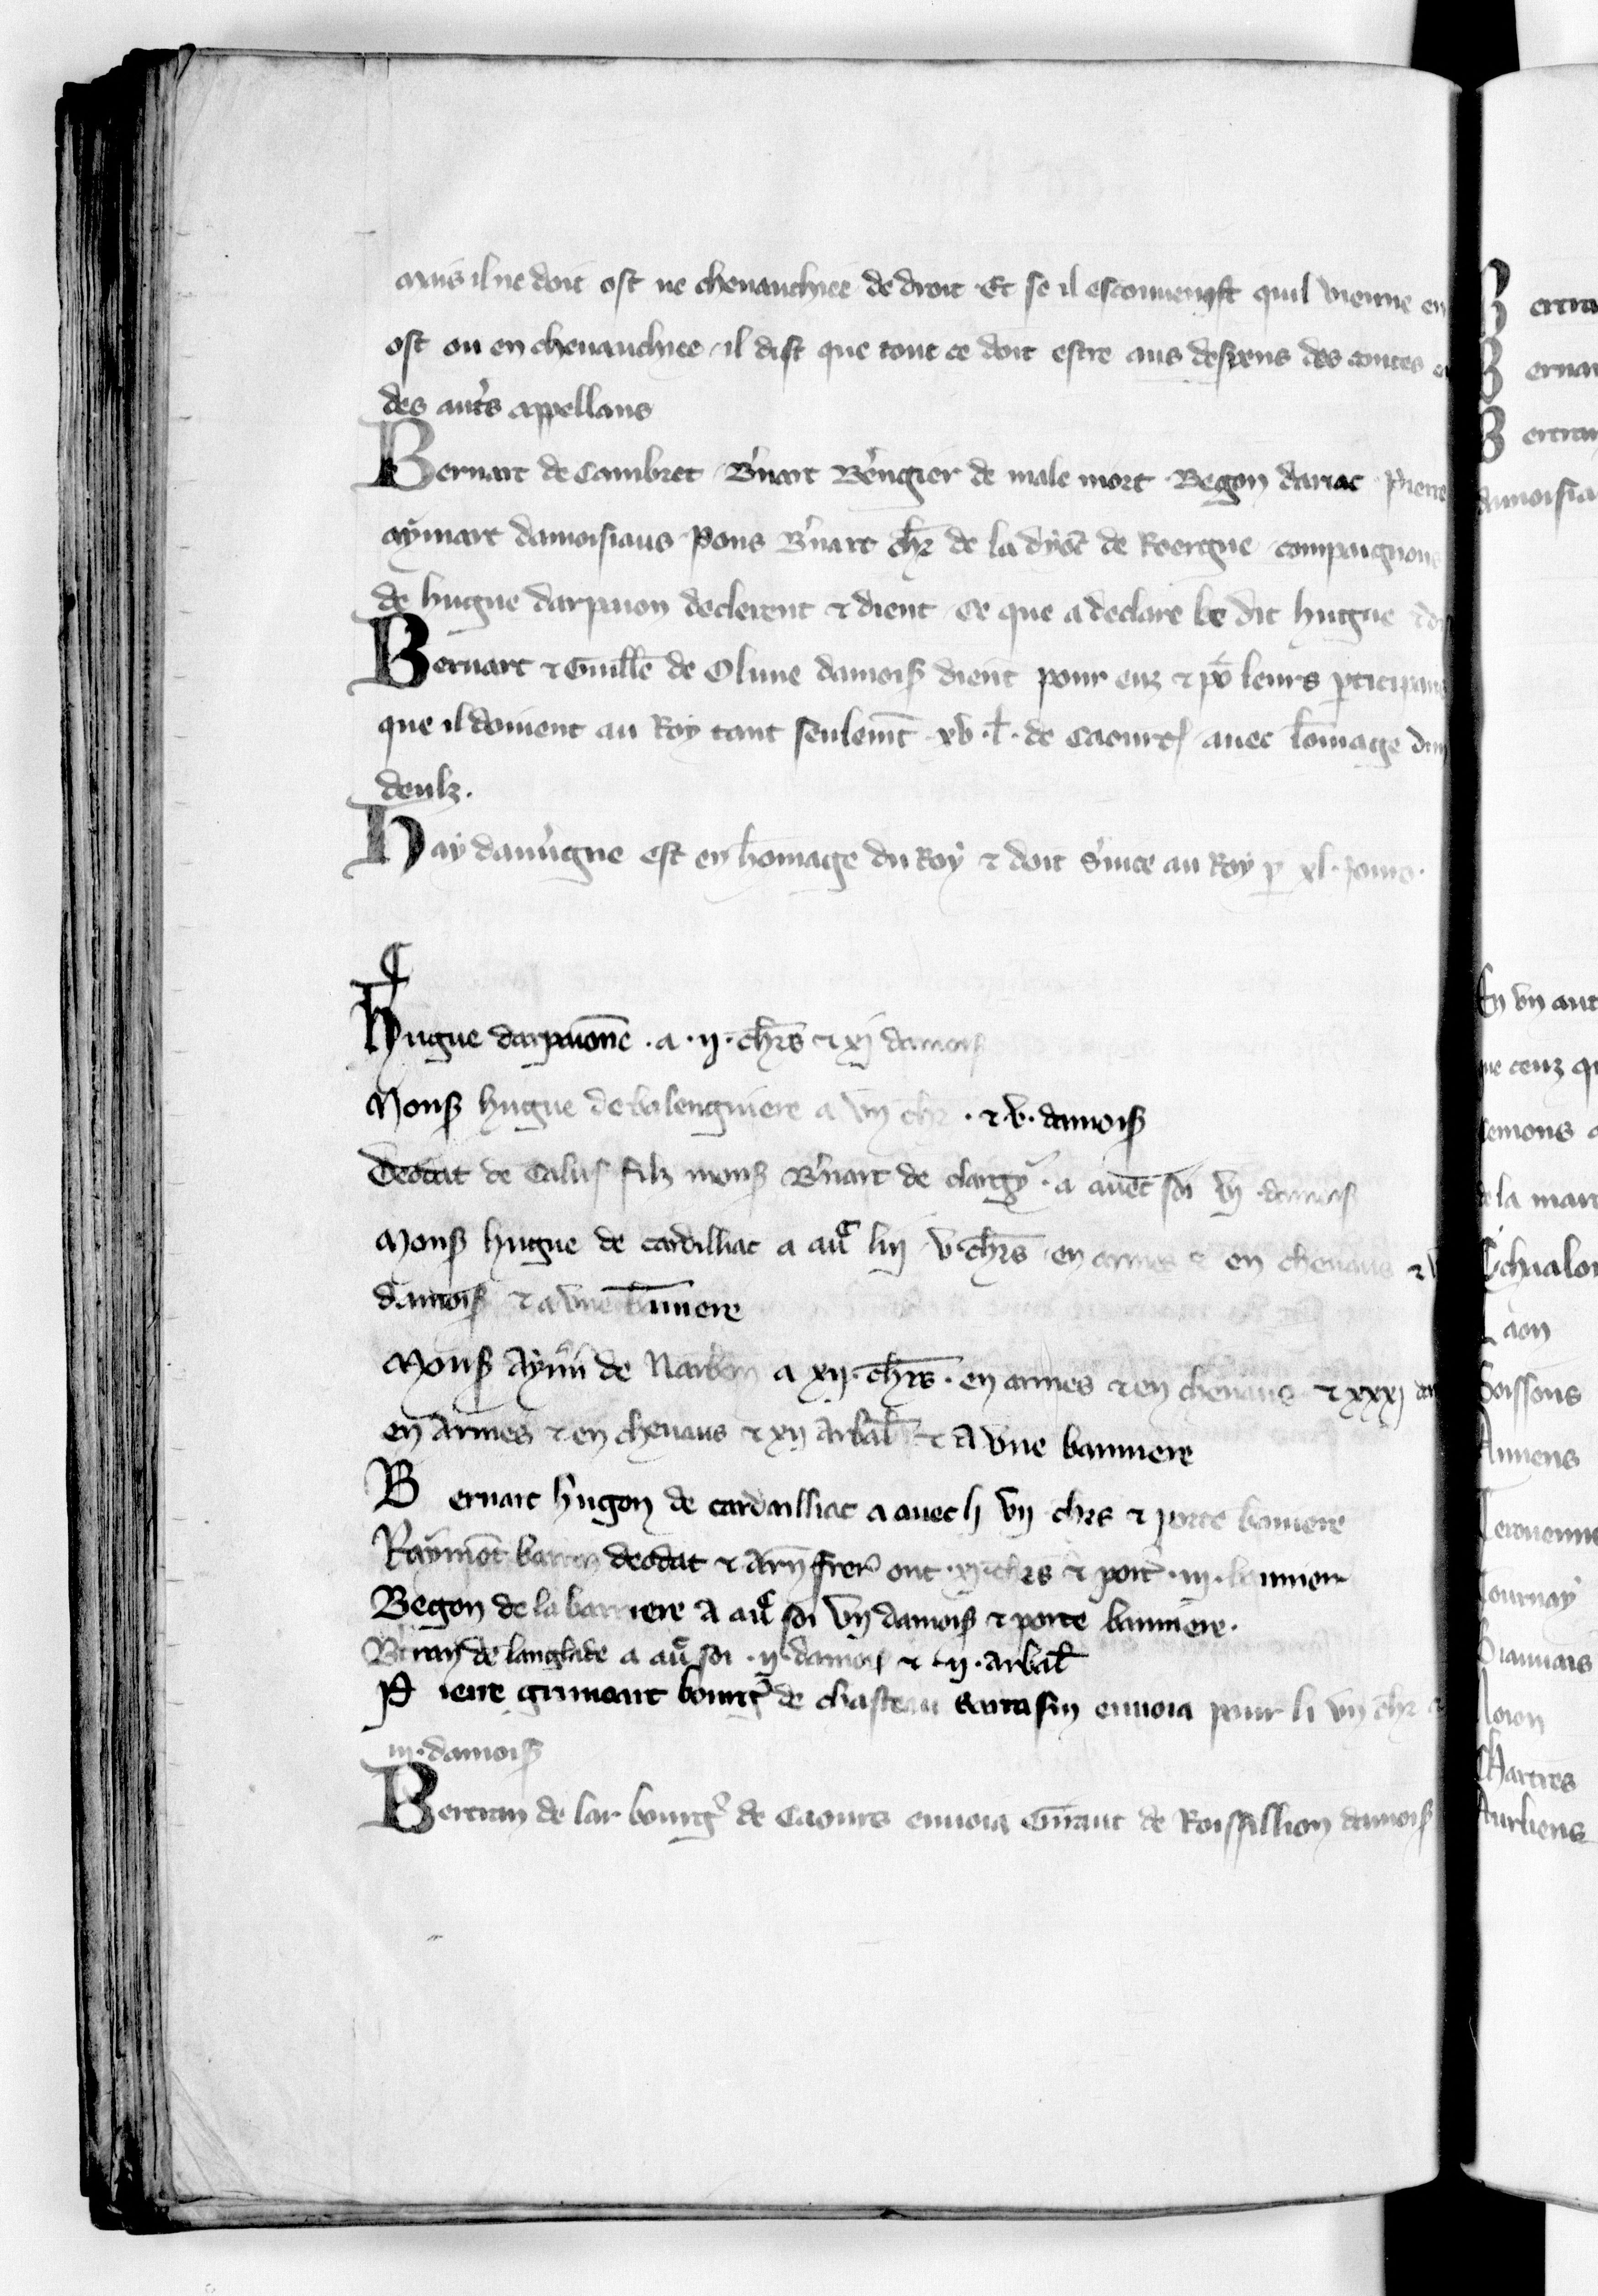 mais il ne doit ost ne cheuauchiee de droit Et se il esconuenist quil vienne en
ost ou en cheuauchiee il dist que tout ce doit estre aus despens des contes et
des aut's appellans
Bernart de Cambret B'nart B'engier de male mort Begon dariac Pierre
aymart damoisiaus Pons B'nart chr de la dyoc de Roergue compaignons
de hugue darpaion declerent & dient ce que a declare le dit hugue
Bernart & Guille de Olime damois dient pour euz & po leurs pticipans
que il doiuent au Roy tant seulemt xv . l . de Caours auec lomage dun
deulz .
Hay dauuigne est en homage du Roy & doit s'uice au Roy p xl . iours .
Hugue darpaione . a . ii . chrs & xi damois
Mons hugue de balenguiere a vn chr . & . v . damois
Deodat de Calus filz mons B'nart de a auec soi vi . damois
Mons hugue de cardilliac a auc v chrs en armes & en cheuaus &
damois & a vne banniere
Mons Aym de Narbon a xii . chrs . en armes & en cheuaus & xxxi
en armes & en cheuaus & xii arbal & a vne banniere
Bernart hugon de cardailliac a auec li vii chrs & porte baniere
Raymot deodat & Arn frer ont . xi . chrs & port . iii . bannier
Begon de la barriere a auc soi vn damois & porte banniere .
B'tran de langlade a auc soi . ii . damois & . ii . arbal
Pierre grimoart bourg de chasteau sarrasin enuoia pour li vn chr &
iii . damois
Bertran de lar bourg de Caours enuoia Guiraut de Roissillion damois
ertra
ernar
ertran
damoisia
En vn aut
ne ceuz q
semons
de la mar
Laon
Soissons
Amiens
Terouenne
Tournay
Biauuais
Noion
Chartres